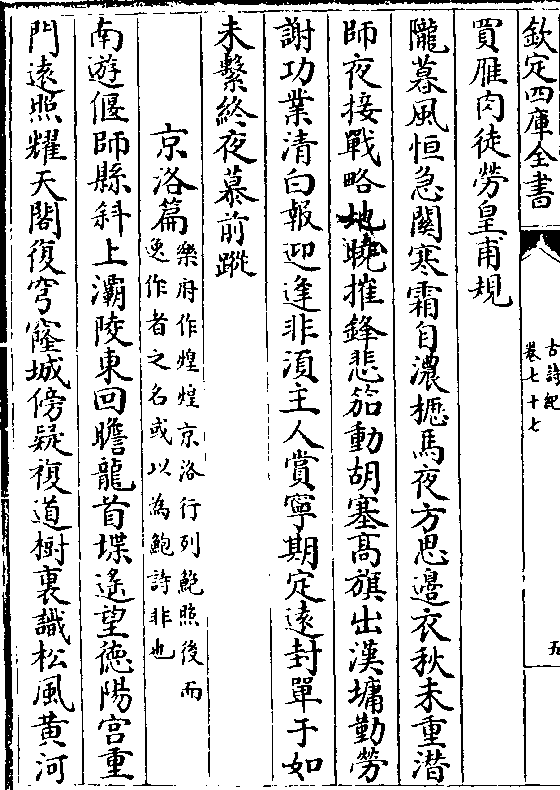 欽定四庫全書
古詩紀
卷七十七
五
買雁肉徒勞皇甫規
隴暮風恒急關寒霜自濃櫪馬夜方思邊衣秋未重潛
師夜接戰略地曉摧鋒悲笳動胡塞高旗出漢墉勤勞
謝功業清白報迎逢非須主人賞寧期定遠封單于如
未繫終夜慕前蹤
京洛篇
樂府作煌煌京洛行列鮑照後而
更作者之名或以為鮑詩非也
南遊偃師縣斜上灞陵東回瞻龍首堞遙望德陽宫重
門遠照耀天閣復穹窿城傍疑複道樹裏識松風黄河